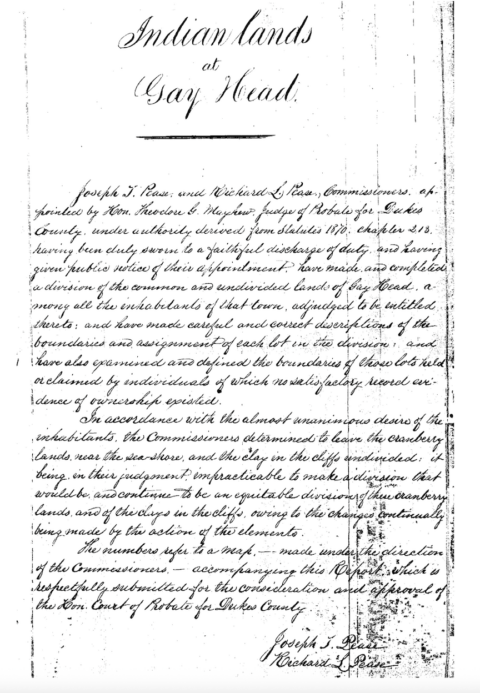 Indian lands
at
Gay Head.
Joseph T. Pease, and Richard L. Pease, Commissioners, ap-
pointed by Hon. Theodore G. Mayhew, Judge of Probate for Dukes
County, under authority derived from Statutes 1870, chapter 213,
having been duly sworn to a faithful discharge of duty, and having
given public notice of their appointment, have made, and completed
a division of the common and undivided lands of Gay Head, a-
mong all the inhabitants of that town, adjudged to be entitled
thereto; and have made careful and correct descriptions of the
boundaries and assignment of each lot in the division; and
have also examined and defined the boundaries of those lots held
or claimed by individuals of which no satisfactory record evi-
dence of ownership existed.
In accordance with the almost unanimous desire of the
inhabitants, the Commissioners determined to leave the cranberry
lands, near the sea-shore, and the clay in the cliffs undivided; it
being, in their judgment, impracticable to make a division that
would be, and continue to be an equitable division of these cranberry
lands, and of the clays in the cliffs, owing to the changes continually
being made by the action of the elements.
The numbers refer to a map, — made under the direction
of the Commissioners, — accompanying this Report, which is
respectfully submitted for the consideration and approval of
the Hon. Court of Probate for Dukes County
Joseph T. Pease
Richard L. Pease